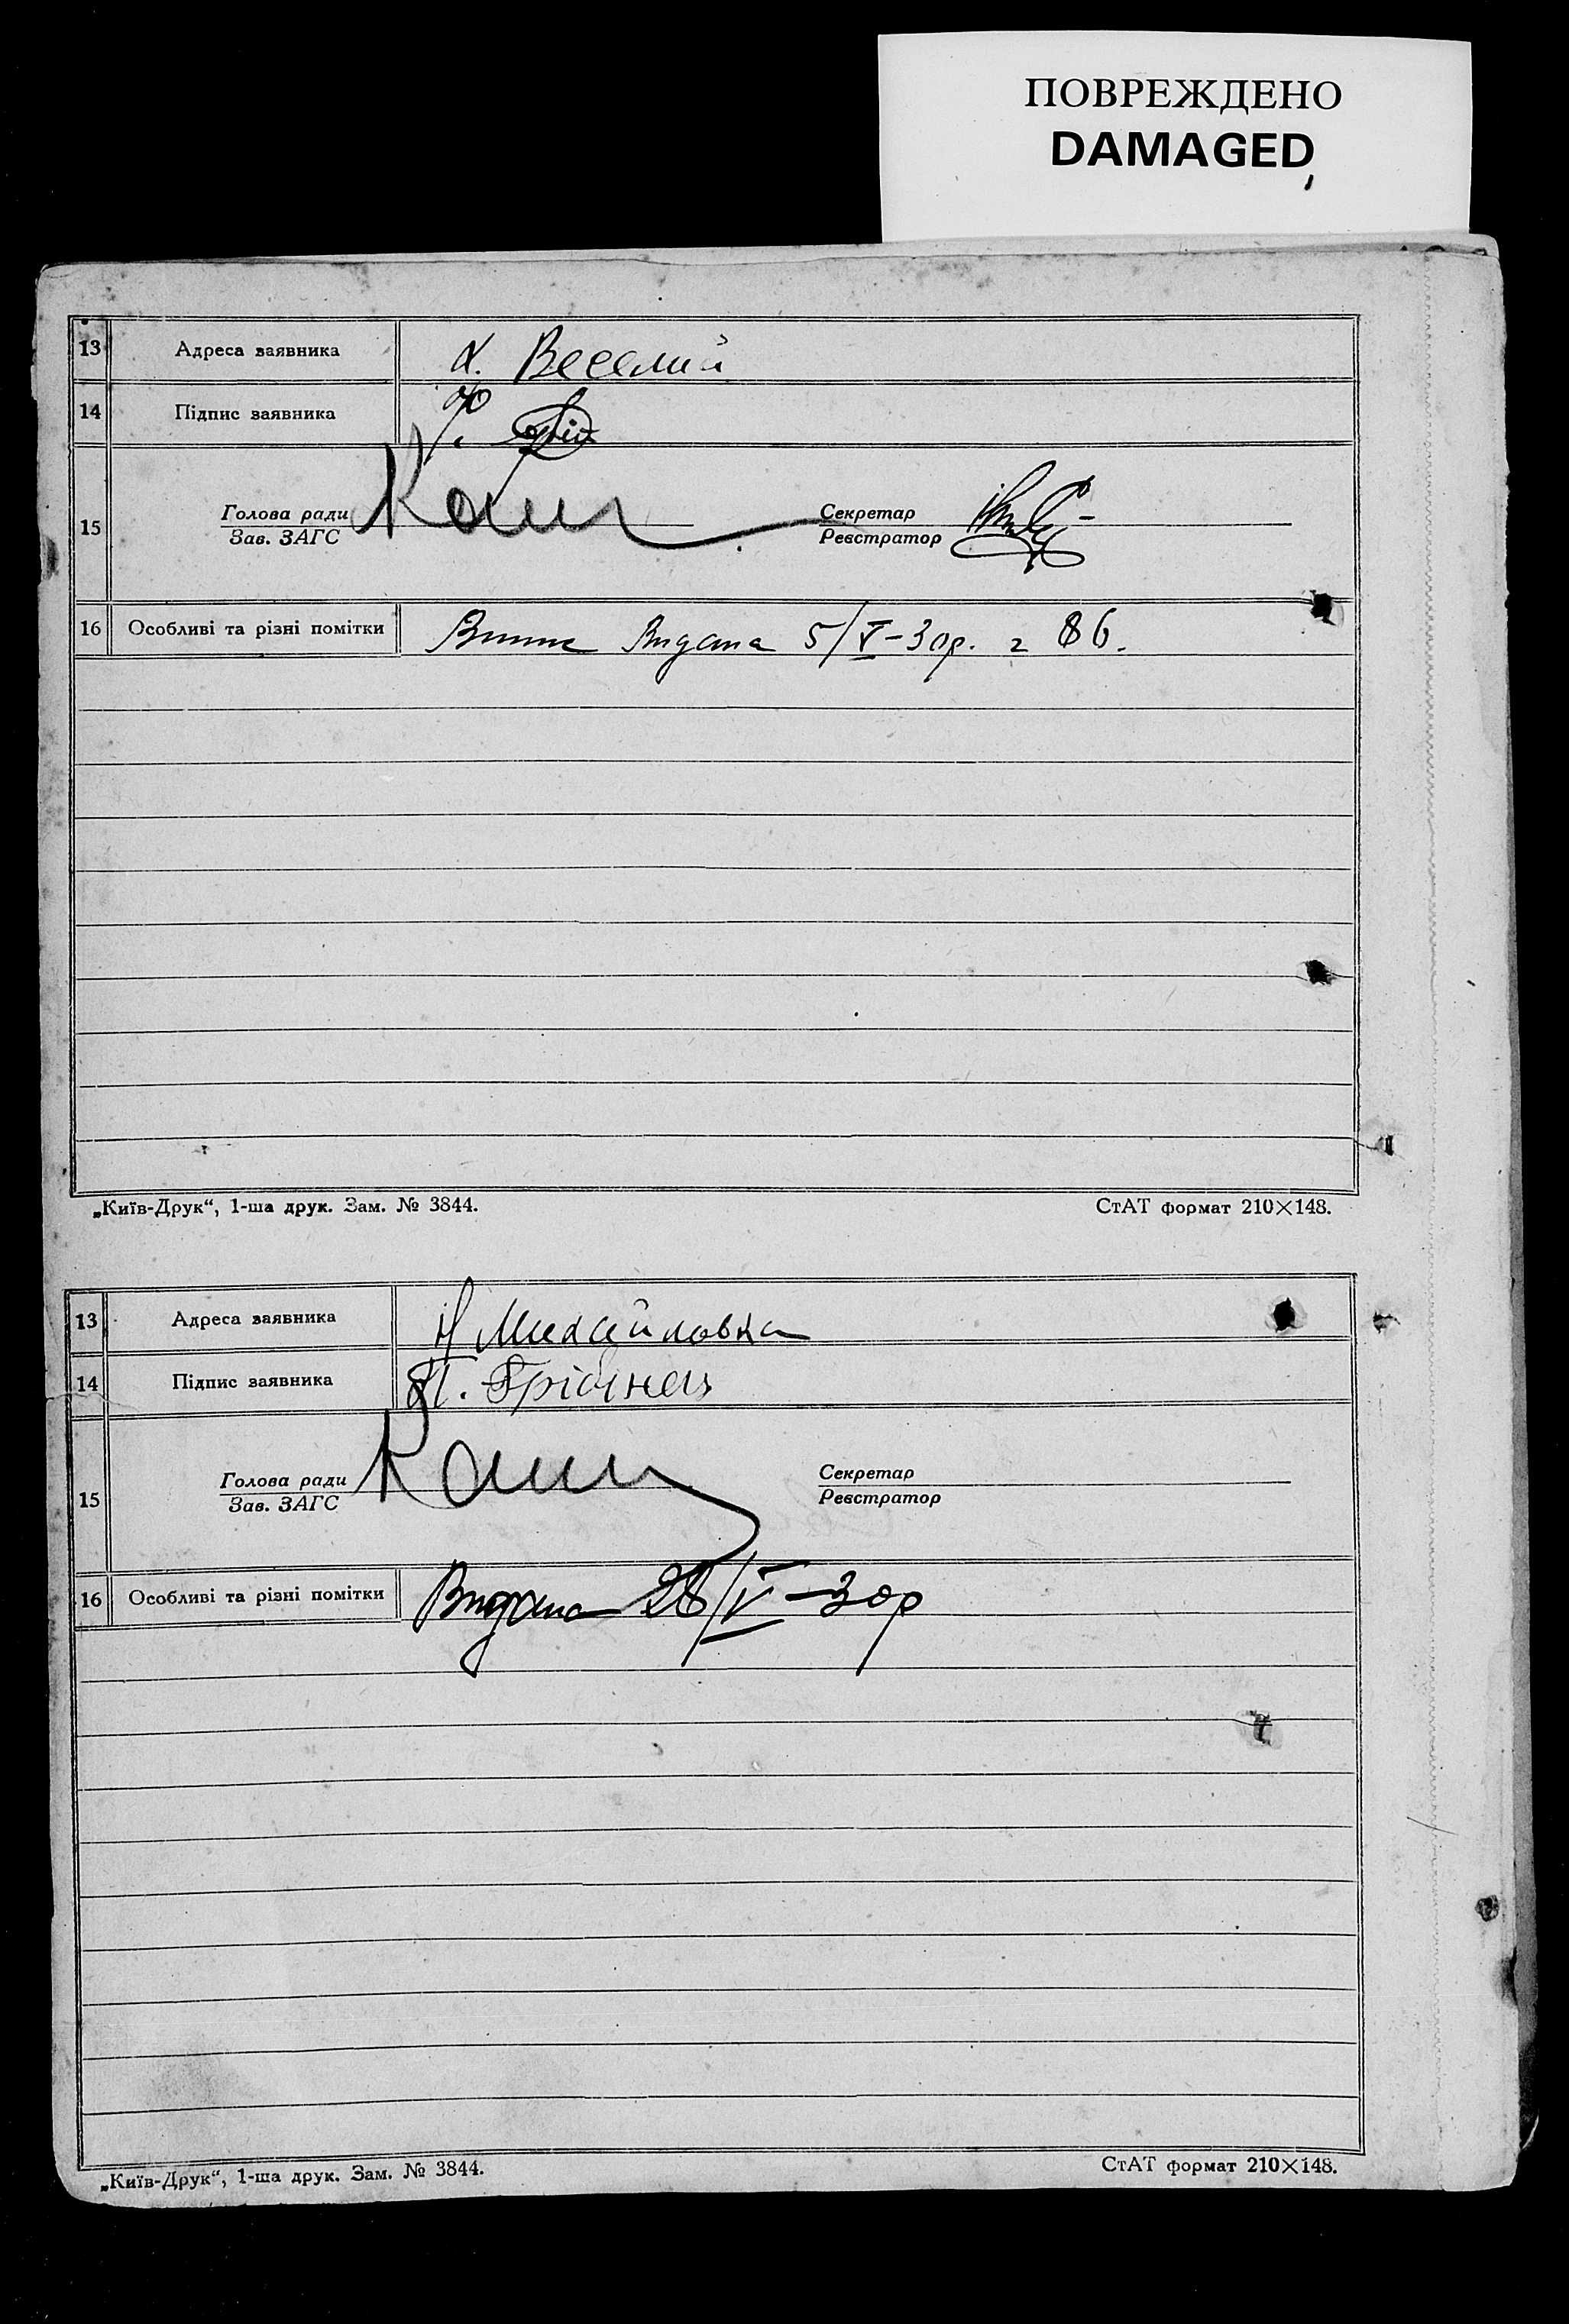 ПОВРЕЖДЕНО
DAMAGED
13 Адреса заявника х. Веселий
14 Підпис заявника
15 Голова ради
Зав. ЗАГС
Секретар
Реєстратор
16 Особливі та різні помітки Видана 5/V-30р. 86.
„Київ-Друк“, 1-ша друк. Зам. № 3844. СтАТ формат 210×148.
13 Адреса заявника Н Михайловка
14 Підпис заявника
15 Голова ради
Зав. ЗАГС
Секретар
Реєстратор
16 Особливі та різні помітки Видана 28/V-30р
„Київ-Друк“, 1-ша друк. Зам. № 3844. СтАТ формат 210×148.